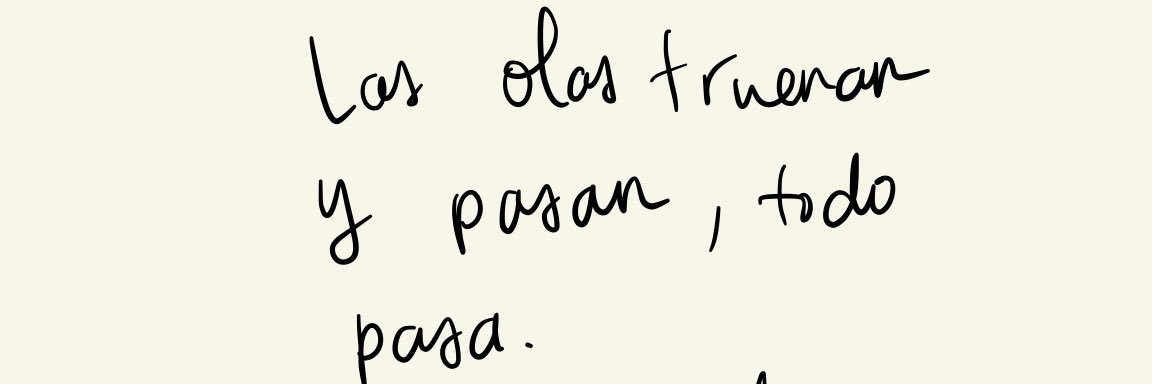 Las olas truenan
y pasan, todo
pasa.